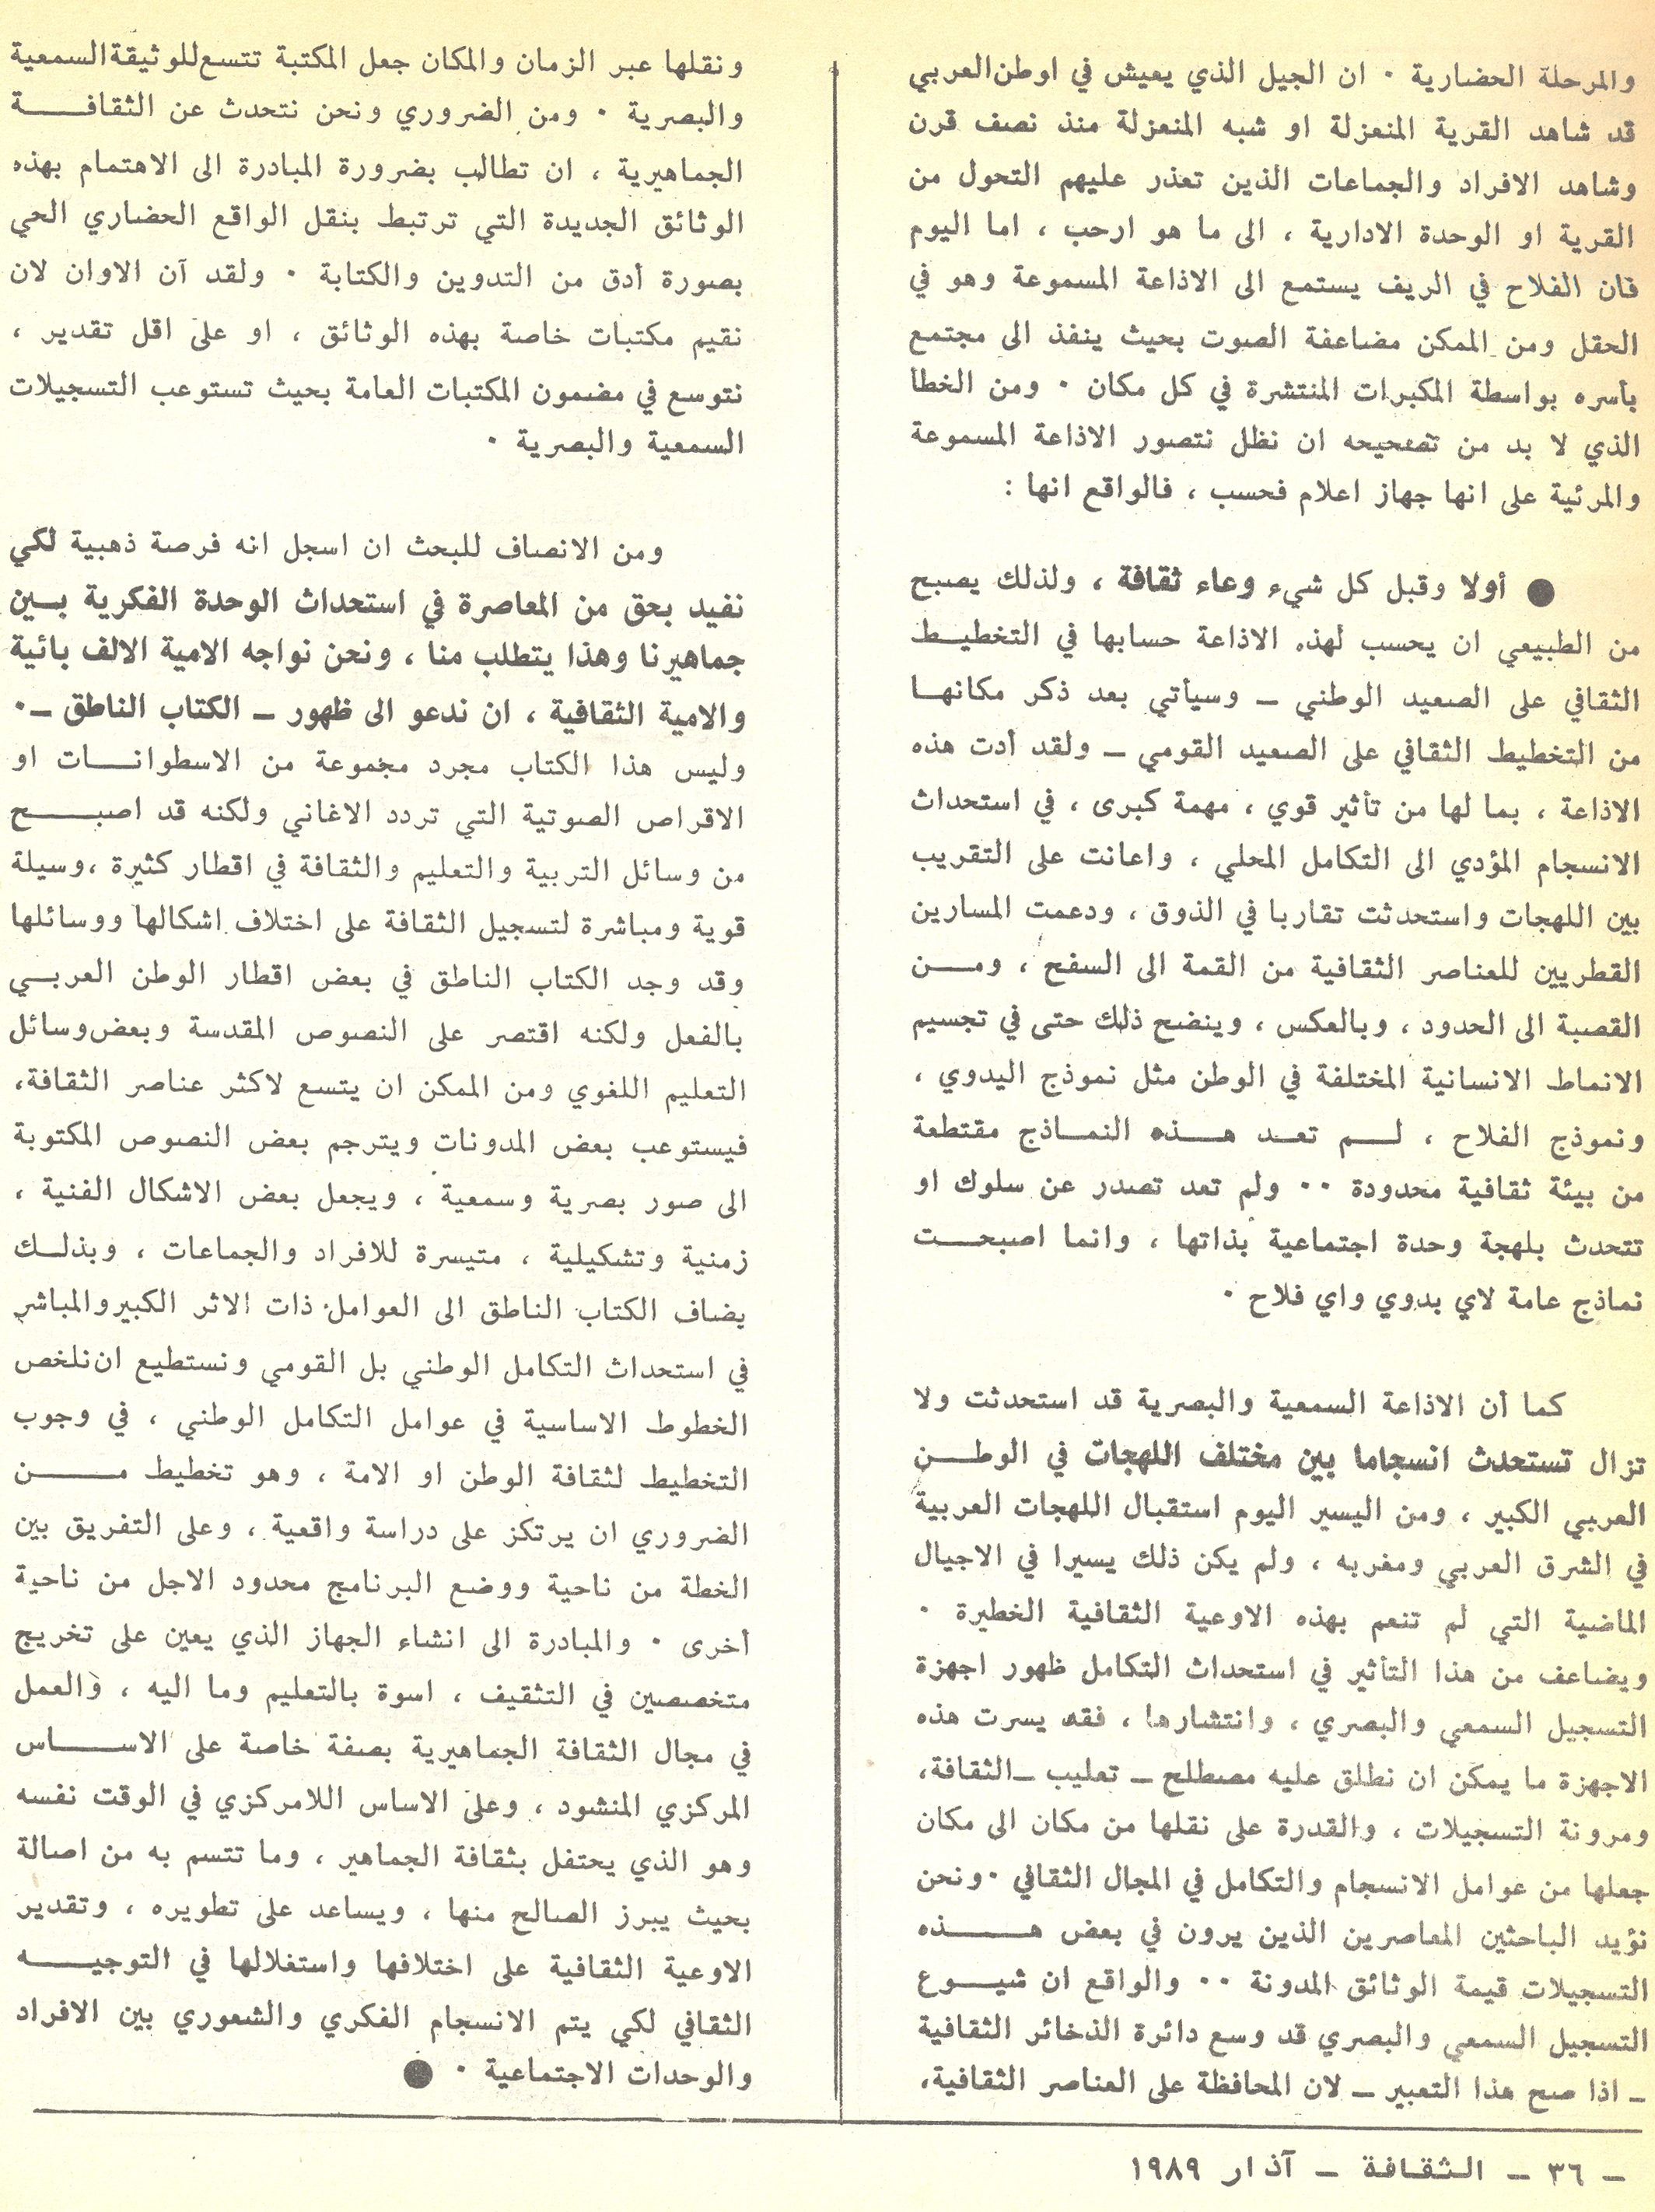 والمرحلة الحضارية ٠ ان الجيل الذي يعيش في اوطن العربي
قد شاهد القرية المنعزلة او شبه المنعزلة منذ نصف قرن
وشاهد الافراد والجماعات الذين تعذر عليهم التحول من
القرية او الوحدة الادارية ، الى ما هو ارحب ، اما اليوم
فان الفلاح في الريف يستمع الى الاذاعة المسموعة وهو في
الحقل ومن الممكن مضاعفة الصوت بحيث ينفذ الى مجتمع
بأسره بواسطة المكبرات المنتشرة في كل مكان ٠ ومن الخطأ
الذي لا بد من تصحيحه ان نظل نتصور الاذاعة المسموعة
والمرئية على انها جهاز اعلام فحسب ، فالواقع انها :
● أولا وقبل كل شيء وعاء ثقافة ، ولذلك يصبح
من الطبيعي ان يحسب لهذه الاذاعة حسابها في التخطيط
الثقافي على الصعيد الوطني ـ وسيأتي بعد ذكر مكانها
من التخطيط الثقافي على الصعيد القومي ـ ولقد أدت هذه
الاذاعة ، بما لها من تأثير قوي ، مهمة كبرى ، في استحداث
الانسجام المؤدي الى التكامل المحلي ، واعانت على التقريب
بين اللهجات واستحدثت تقاربا في الذوق ، ودعمت المسارين
القطريين للعناصر الثقافية من القمة الى السفح ، ومن
القصبة الى الحدود ، وبالعكس ، وينضح ذلك حتى في تجسيم
الانماط الانسانية المختلفة في الوطن مثل نموذج البدوي ،
ونموذج الفلاح ، لم تعد هذه النماذج مقتطعة
من بيئة ثقافية محدودة ٠٠ ولم تعد تصدر عن سلوك او
تتحدث بلهجة وحدة اجتماعية بذاتها ، وانما اصبحت
نماذج عامة لاي بدوي واي فلاح ٠
كما أن الاذاعة السمعية والبصرية قد استحدثت ولا
تزال تستحدث انسجاما بين مختلف اللهجات في الوطن
العربي الكبير ، ومن اليسير اليوم استقبال اللهجات العربية
في الشرق العربي ومغربه ، ولم يكن ذلك يسيرا في الاجيال
الماضية التي لم تنعم بهذه الاوعية الثقافية الخطيرة ٠
ويضاعف من هذا التأثير في استحداث التكامل ظهور اجهزة
التسجيل السمعي والبصري ، وانتشارها ، فقد يسرت هذه
الاجهزة ما يمكن ان نطلق عليه مصطلح ـ تعليب ـ الثقافة،
ومرونة التسجيلات ، والقدرة على نقلها من مكان الى مكان
جعلها من عوامل الانسجام والتكامل في المجال الثقافي ٠ ونحن
نؤيد الباحثين المعاصرين الذين يرون في بعض هذه
التسجيلات قيمة الوثائق المدونة ٠٠ والواقع ان شيوع
التسجيل السمعي والبصري قد وسع دائرة الذخائر الثقافية
ـ اذا صح هذا التعبير ـ لان المحافظة على العناصر الثقافية،
ونقلها عبر الزمان والمكان جعل المكتبة تتسع للوثيقة السمعية
والبصرية ٠ ومن الضروري ونحن نتحدث عن الثقافة
الجماهيرية ، ان تطالب بضرورة المبادرة الى الاهتمام بهذه
الوثائق الجديدة التي ترتبط بنقل الواقع الحضاري الحي
بصورة أدق من التدوين والكتابة ٠ ولقد آن الاوان لان
نقيم مكتبات خاصة بهذه الوثائق ، او على اقل تقدير ،
نتوسع في مضمون المكتبات العامة بحيث تستوعب التسجيلات
السمعية والبصرية ٠
ومن الانصاف للبحث ان اسجل انه فرصة ذهبية لكي
نفيد بحق من المعاصرة في استحداث الوحدة الفكرية بين
جماهيرنا وهذا يتطلب منا ، ونحن نواجه الامية الالف بائية
والامية الثقافية ، ان ندعو الى ظهور ـ الكتاب الناطق ـ ٠
وليس هذا الكتاب مجرد مجموعة من الاسطوانات او
الاقراص الصوتية التي تردد الاغاني ولكنه قد اصبح
من وسائل التربية والتعليم والثقافة في اقطار كثيرة ، وسيلة
قوية ومباشرة لتسجيل الثقافة على اختلاف اشكالها ووسائلها
وقد وجد الكتاب الناطق في بعض اقطار الوطن العربي
بالفعل ولكنه اقتصر على النصوص المقدسة وبعض وسائل
التعليم اللغوي ومن الممكن ان يتسع لاكثر عناصر الثقافة،
فيستوعب بعض المدونات ويترجم بعض النصوص المكتوبة
الى صور بصرية وسمعية ، ويجعل بعض الاشكال الفنية ،
زمنية وتشكيلية ، متيسرة للافراد والجماعات ، وبذلك
يضاف الكتاب الناطق الى العوامل ذات الاثر الكبير والمباشر
في استحداث التكامل الوطني بل القومي ونستطيع ان نلخص
الخطوط الاساسية في عوامل التكامل الوطني ، في وجوب
التخطيط لثقافة الوطن او الامة ، وهو تخطيط من
الضروري ان يرتكز على دراسة واقعية ، وعلى التفريق بين
الخطة من ناحية ووضع البرنامج محدود الاجل من ناحية
أخرى ٠ والمبادرة الى انشاء الجهاز الذي يعين على تخريج
متخصصين في التثقيف ، اسوة بالتعليم وما اليه ، والعمل
في مجال الثقافة الجماهيرية بصفة خاصة على الاساس
المركزي المنشود ، وعلى الاساس اللامركزي في الوقت نفسه
وهو الذي يحتفل بثقافة الجماهير ، وما تتسم به من اصالة
بحيث يبرز الصالح منها ، ويساعد على تطويره ، وتقدير
الاوعية الثقافية على اختلافها واستغلالها في التوجيه
الثقافي لكي يتم الانسجام الفكري والشعوري بين الافراد
والوحدات الاجتماعية ٠ ●
ـ ٣٦ ـ الثقافة ـ آذار ١٩٨٩